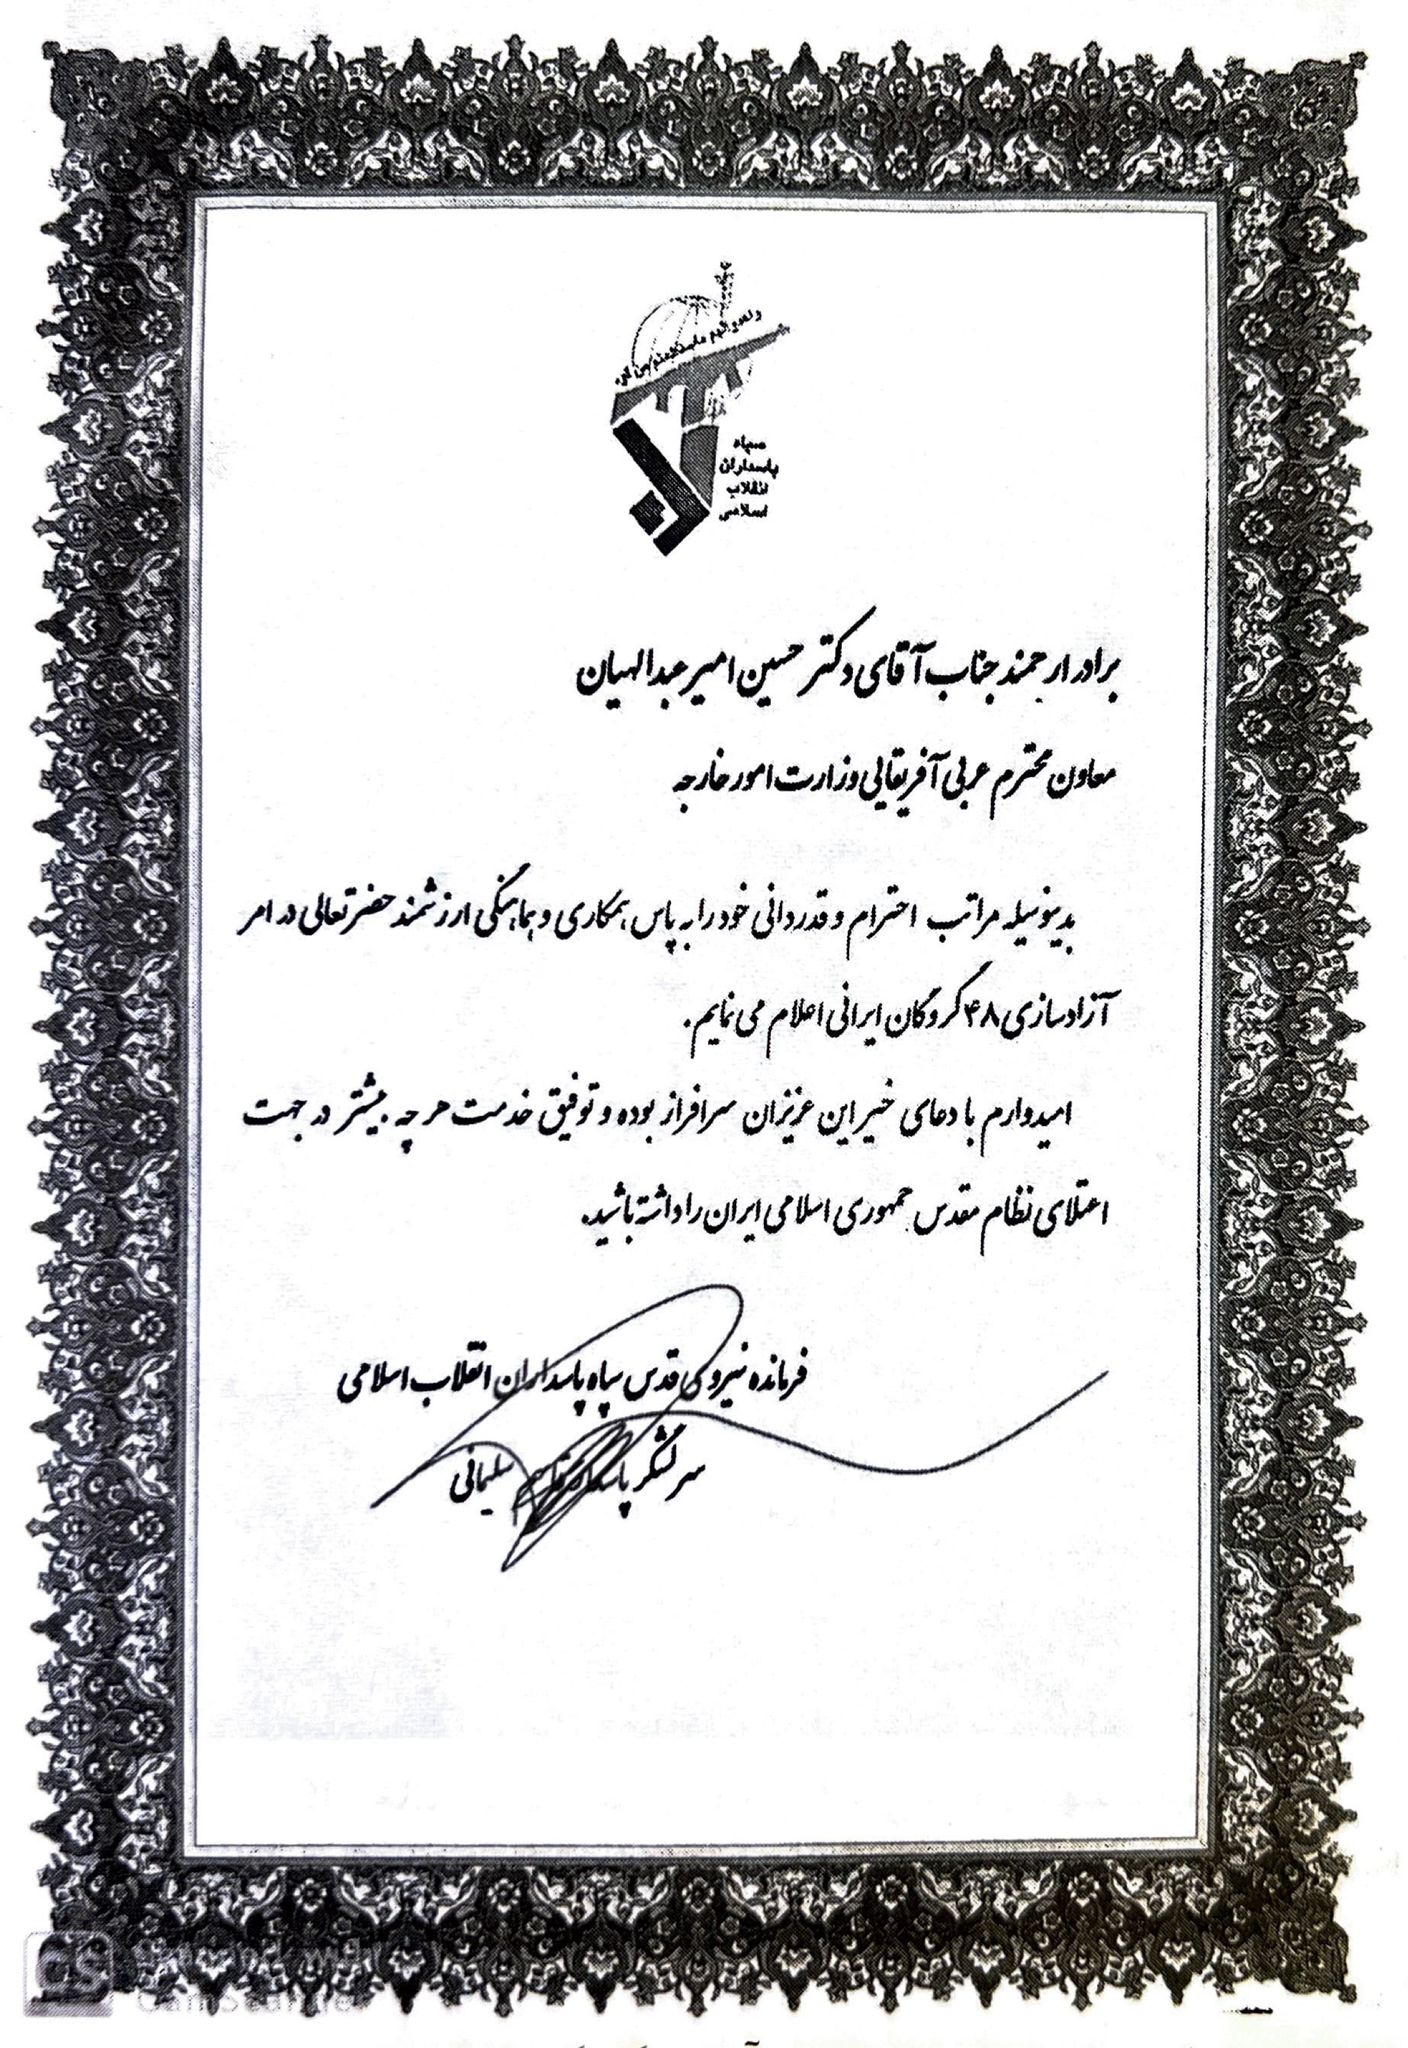 سپاه
پاسداران
انقلاب
اسلامی
برادر ارجمند جناب آقای دکتر حسین امیرعبدالهیان
معاون محترم عربی آفریقایی وزارت امور خارجه
بدینوسیله مراتب احترام و قدردانی خود را به پاس همکاری و هماهنگی ارزشمند حضرتعالی در امر
آزادسازی ۴۸ گروگان ایرانی اعلام می نمایم.
امیدوارم با دعای خیر این عزیزان سرافراز بوده و توفیق خدمت هر چه بیشتر در جهت
اعتلای نظام مقدس جمهوری اسلامی ایران را داشته باشید.
فرمانده نیروی قدس سپاه پاسداران انقلاب اسلامی
سرلشکر پاسدار قاسم سلیمانی
CS
CamScanner